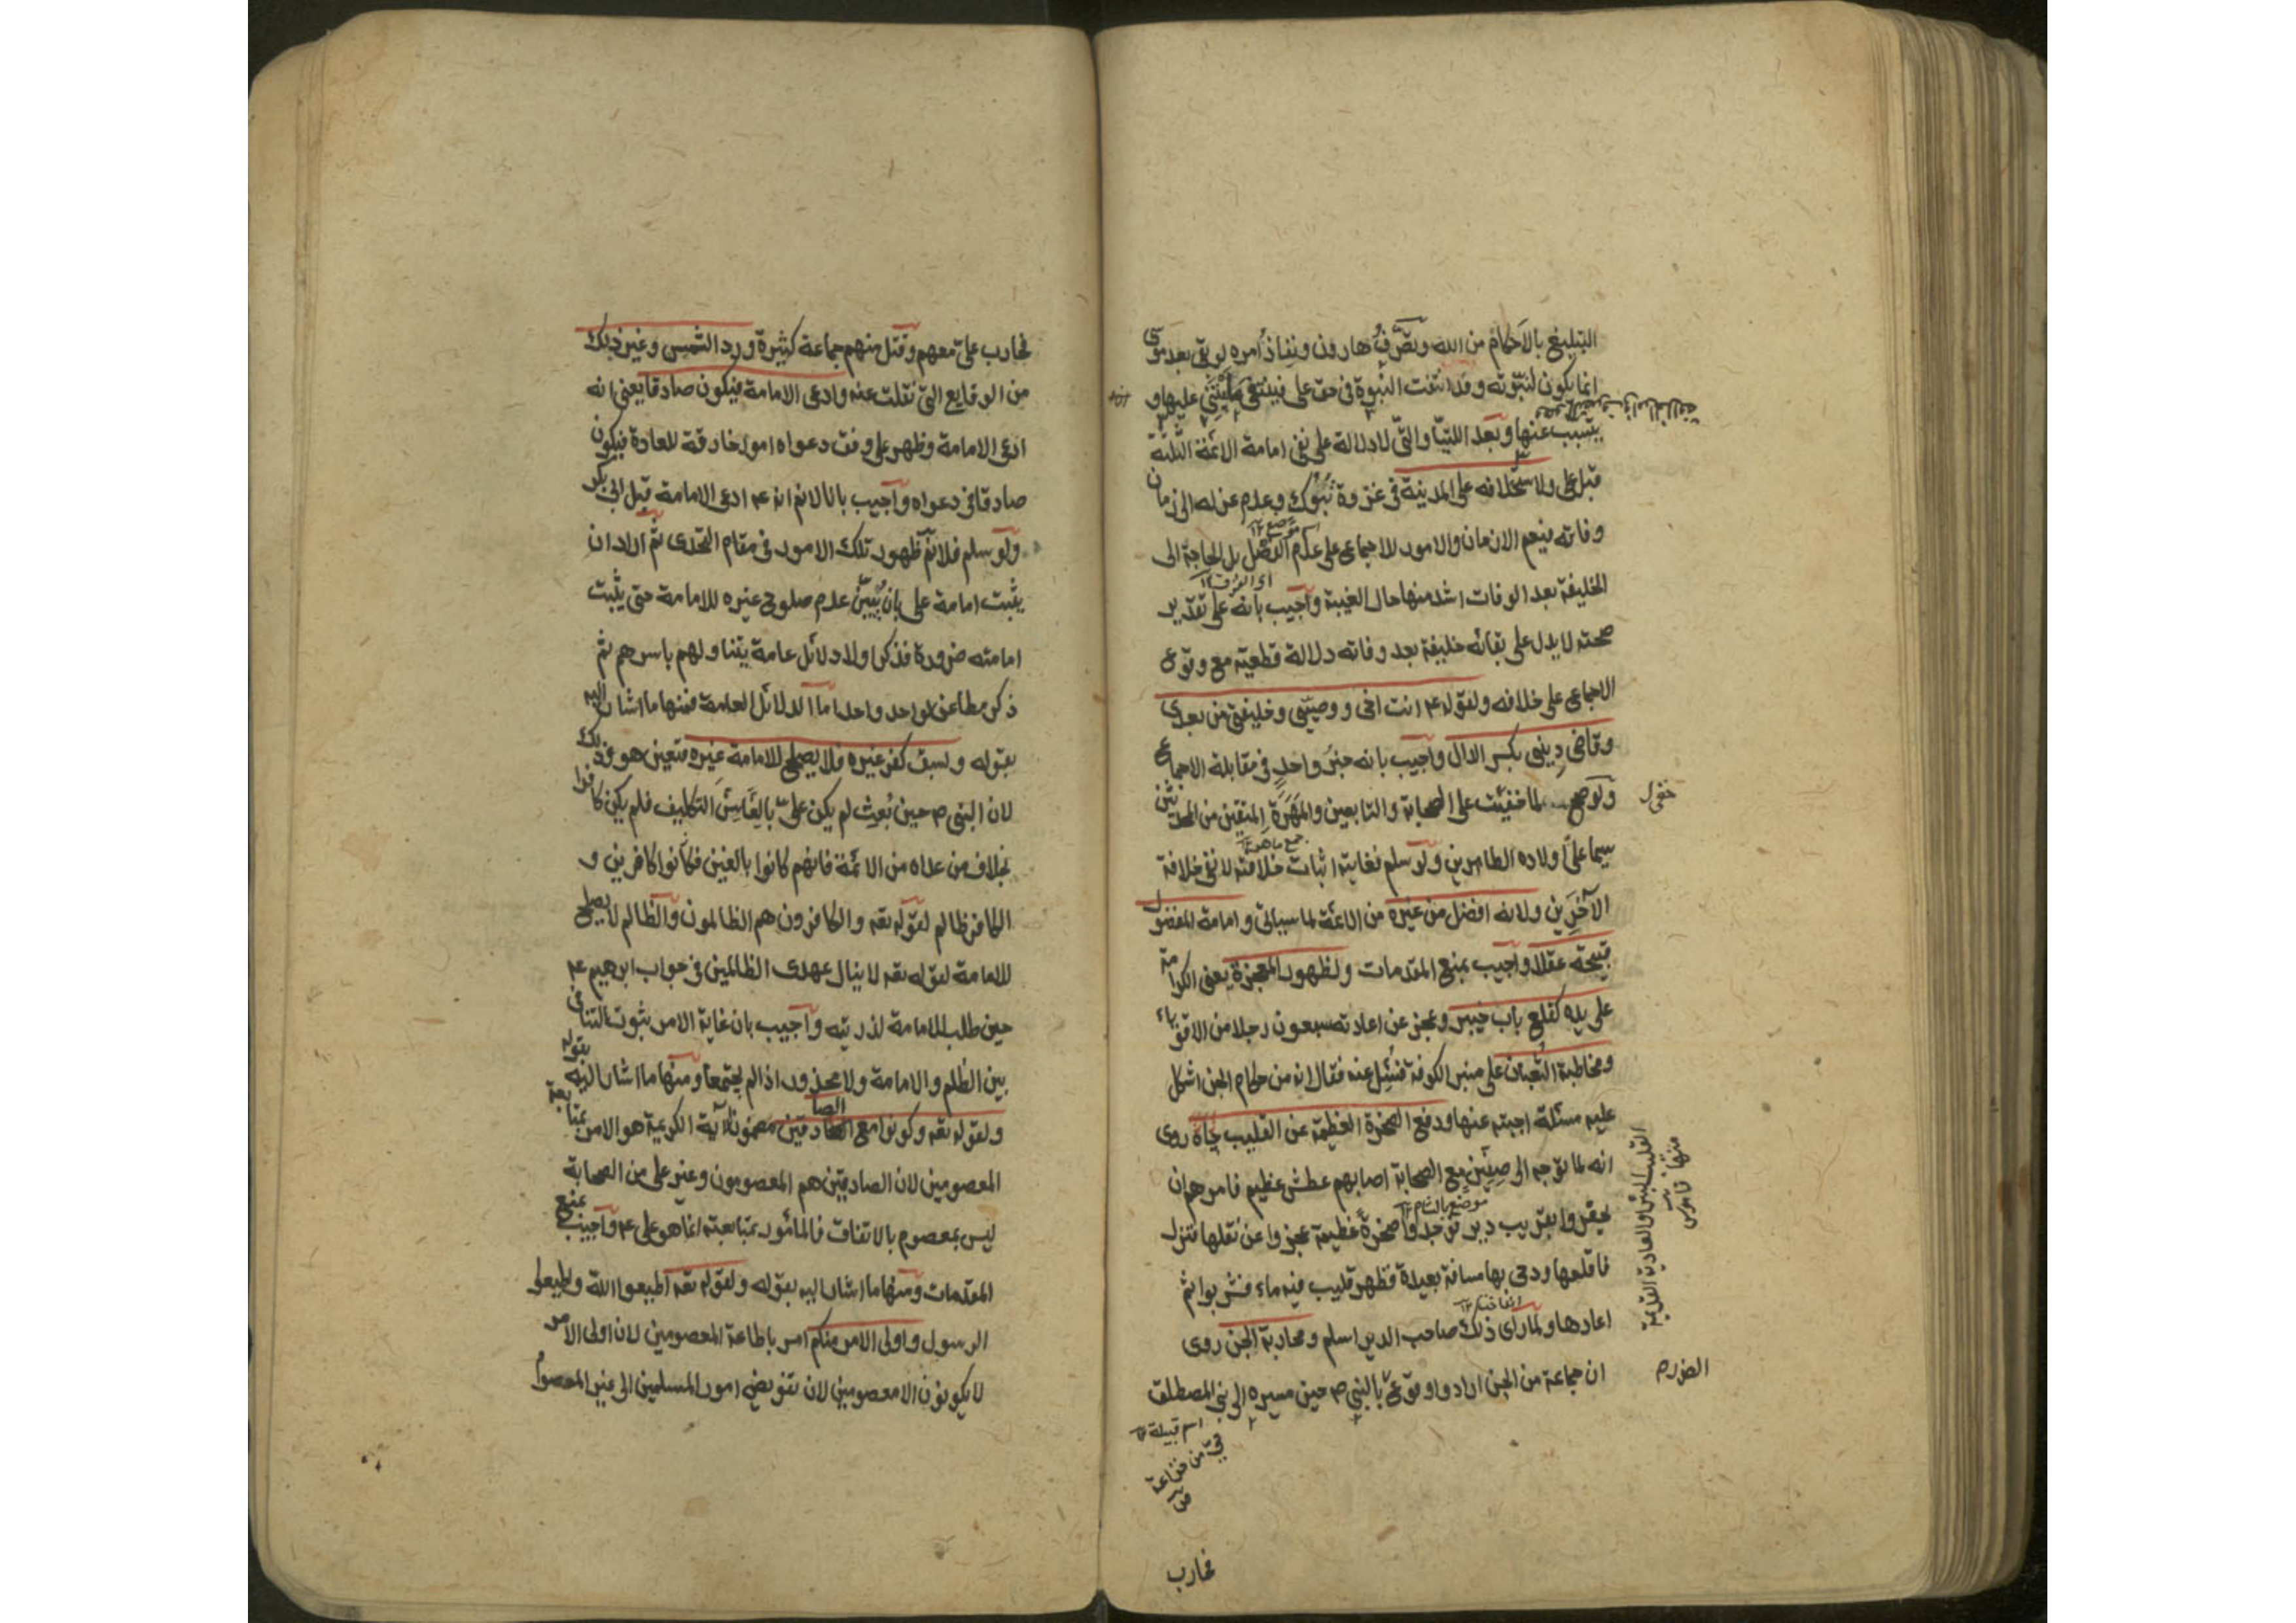 التبليغ بالاحكام من الله وتصرف هارون ونفاذ امره لو بقى بعد موسى
انما يكون لنبوته وقد انتفت النبوة فى حق على فينتفى ما يبتنى عليها و
يتسبب عنها وبعد اللتيا والتى لا دلالة على نفى امامة الائمة الثلثة
قبل على ولاستخلافه على المدينة فى غزوة تبوك وعدم عزله الى زمان
وفاته فيعم الازمان والامور للاجماع على عدم الفصل بل الحاجة الى
الخليفة بعد الوفات اشد منها حال الغيبة واجيب بانه على تقدير
صحته لا يدل على بقائه خليفة بعد وفاته دلالة قطعية مع وقوع
الاجماع على خلافه ولقوله عم انت اخى ووصيتى وخليفتى من بعدى
وقاضى دينى بكسر الدال واجيب بانه خبر واحد فى مقابلة الاجماع
ولو صح لما خفيت على الصحابة والتابعين والمهرة المتقين من المحدثين
سيما على اولاده الطاهرين ولو سلم فغايته اثبات خلافته لا نفى خلافة
الآخرين ولانه افضل من غيره من الائمة لما سياتى وامامة المفضول
قبيحة عقلا واجيب بمنع المقدمات ولظهور المعجزة يعنى الكرامة
على يده كقلع باب خيبر وعجز عن اعادته سبعون رجلا من الاقوياء
ومخاطبة الثعبان على منبر الكوفة فسئل عنه فقال انه من حكام الجن اشكل
عليه مسئلة اجبته عنها ودفع الصخرة العظيمة عن القليب روى
انه لما توجه الى صفين مع الصحابة اصابهم عطش عظيم فامرهم ان
يحفروا بقريب دير فوجدوا صخرة عظيمة عجزوا عن نقلها فنزل
فاقلعها ودحى بها مسافة بعيدة فظهر قليب فيه ماء فشربوا ثم
اعادها ولما راى ذلك صاحب الدير اسلم ومحاربة الجن روى
ان جماعة من الجن ارادوا وقوع بالنبى ص حين مسيره الى بنى المصطلق
موضع
اى العزف
جمع ماهر
موضع بالشام
اسم قبيلة
حى من خزاعة
القليب البئر والعادية القديمة
منها قاموس
فحارب
فحارب على معهم وقتل منهم جماعة كثيرة ورد الشمس وغير ذلك
من الوقايع التى نقلت عنه وادعى الامامة فيكون صادقا يعنى انه
ادعى الامامة وظهر على وفق دعواه امور خارقة للعادة فيكون
صادقا فى دعواه واجيب بانا لانم انه عم ادعى الامامة قبل ابى بكر
ولو سلم فلانم ظهور تلك الامور فى مقام التحدى ثم اراد ان
يثبت امامة على بان يبين عدم صلوح غيره للامامة حتى يثبت
امامته ضرورة فذكر اولا دلائل عامة يتناولهم باسرهم ثم
ذكر مطاعن لواحد واحد اما الدلائل العامة فمنها ما اشار اليه
بقوله ولسبق كفر غيره فلا يصلح للامامة غيره فتعين هو وذلك
لان النبى ص حين بعث لم يكن على بالغا سن التكليف فلم يكن كافرا
بخلاف من عداه من الائمة فانهم كانوا بالغين فكانوا كافرين و
الكافر ظالم لقوله تعه والكافرون هم الظالمون والظالم لا يصلح
للامامة لقوله تعه لا ينال عهدى الظالمين فى جواب ابرهيم عم
حين طلب للامامة لذريته واجيب بان غاية الامر ثبوت التنافى
بين الظلم والامامة ولا محذور اذا لم يجتمعا ومنها ما اشار اليه بقوله
ولقوله تعه وكونوا مع الصادقين مضمون الآية الكريمة هو الامر بمتابعة
المعصومين لان الصادقين هم المعصومون وغير على من الصحابة
ليس بمعصوم بالاتفاق فالمأمور بمتابعته انما هو على عم واجيب بمنع
المقدمات ومنها ما اشار اليه بقوله ولقوله تعه اطيعوا الله واطيعوا
الرسول واولى الامر منكم امر باطاعة المعصومين لان اولى الامر
لا يكونون الا معصومين لان تفويض امور المسلمين الى غير المعصوم